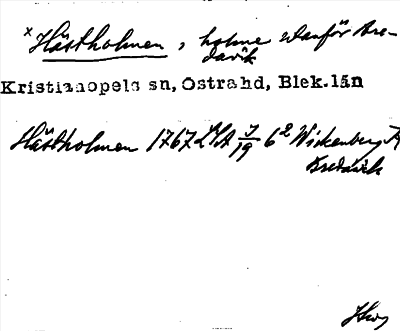 x Hästholmen, holme utanför Bre-
davik
Kristianopels sn, Östra hd, Blek.län
Hästholmen 1767 LSA J/19 6² Wickenberg K
Bredavik